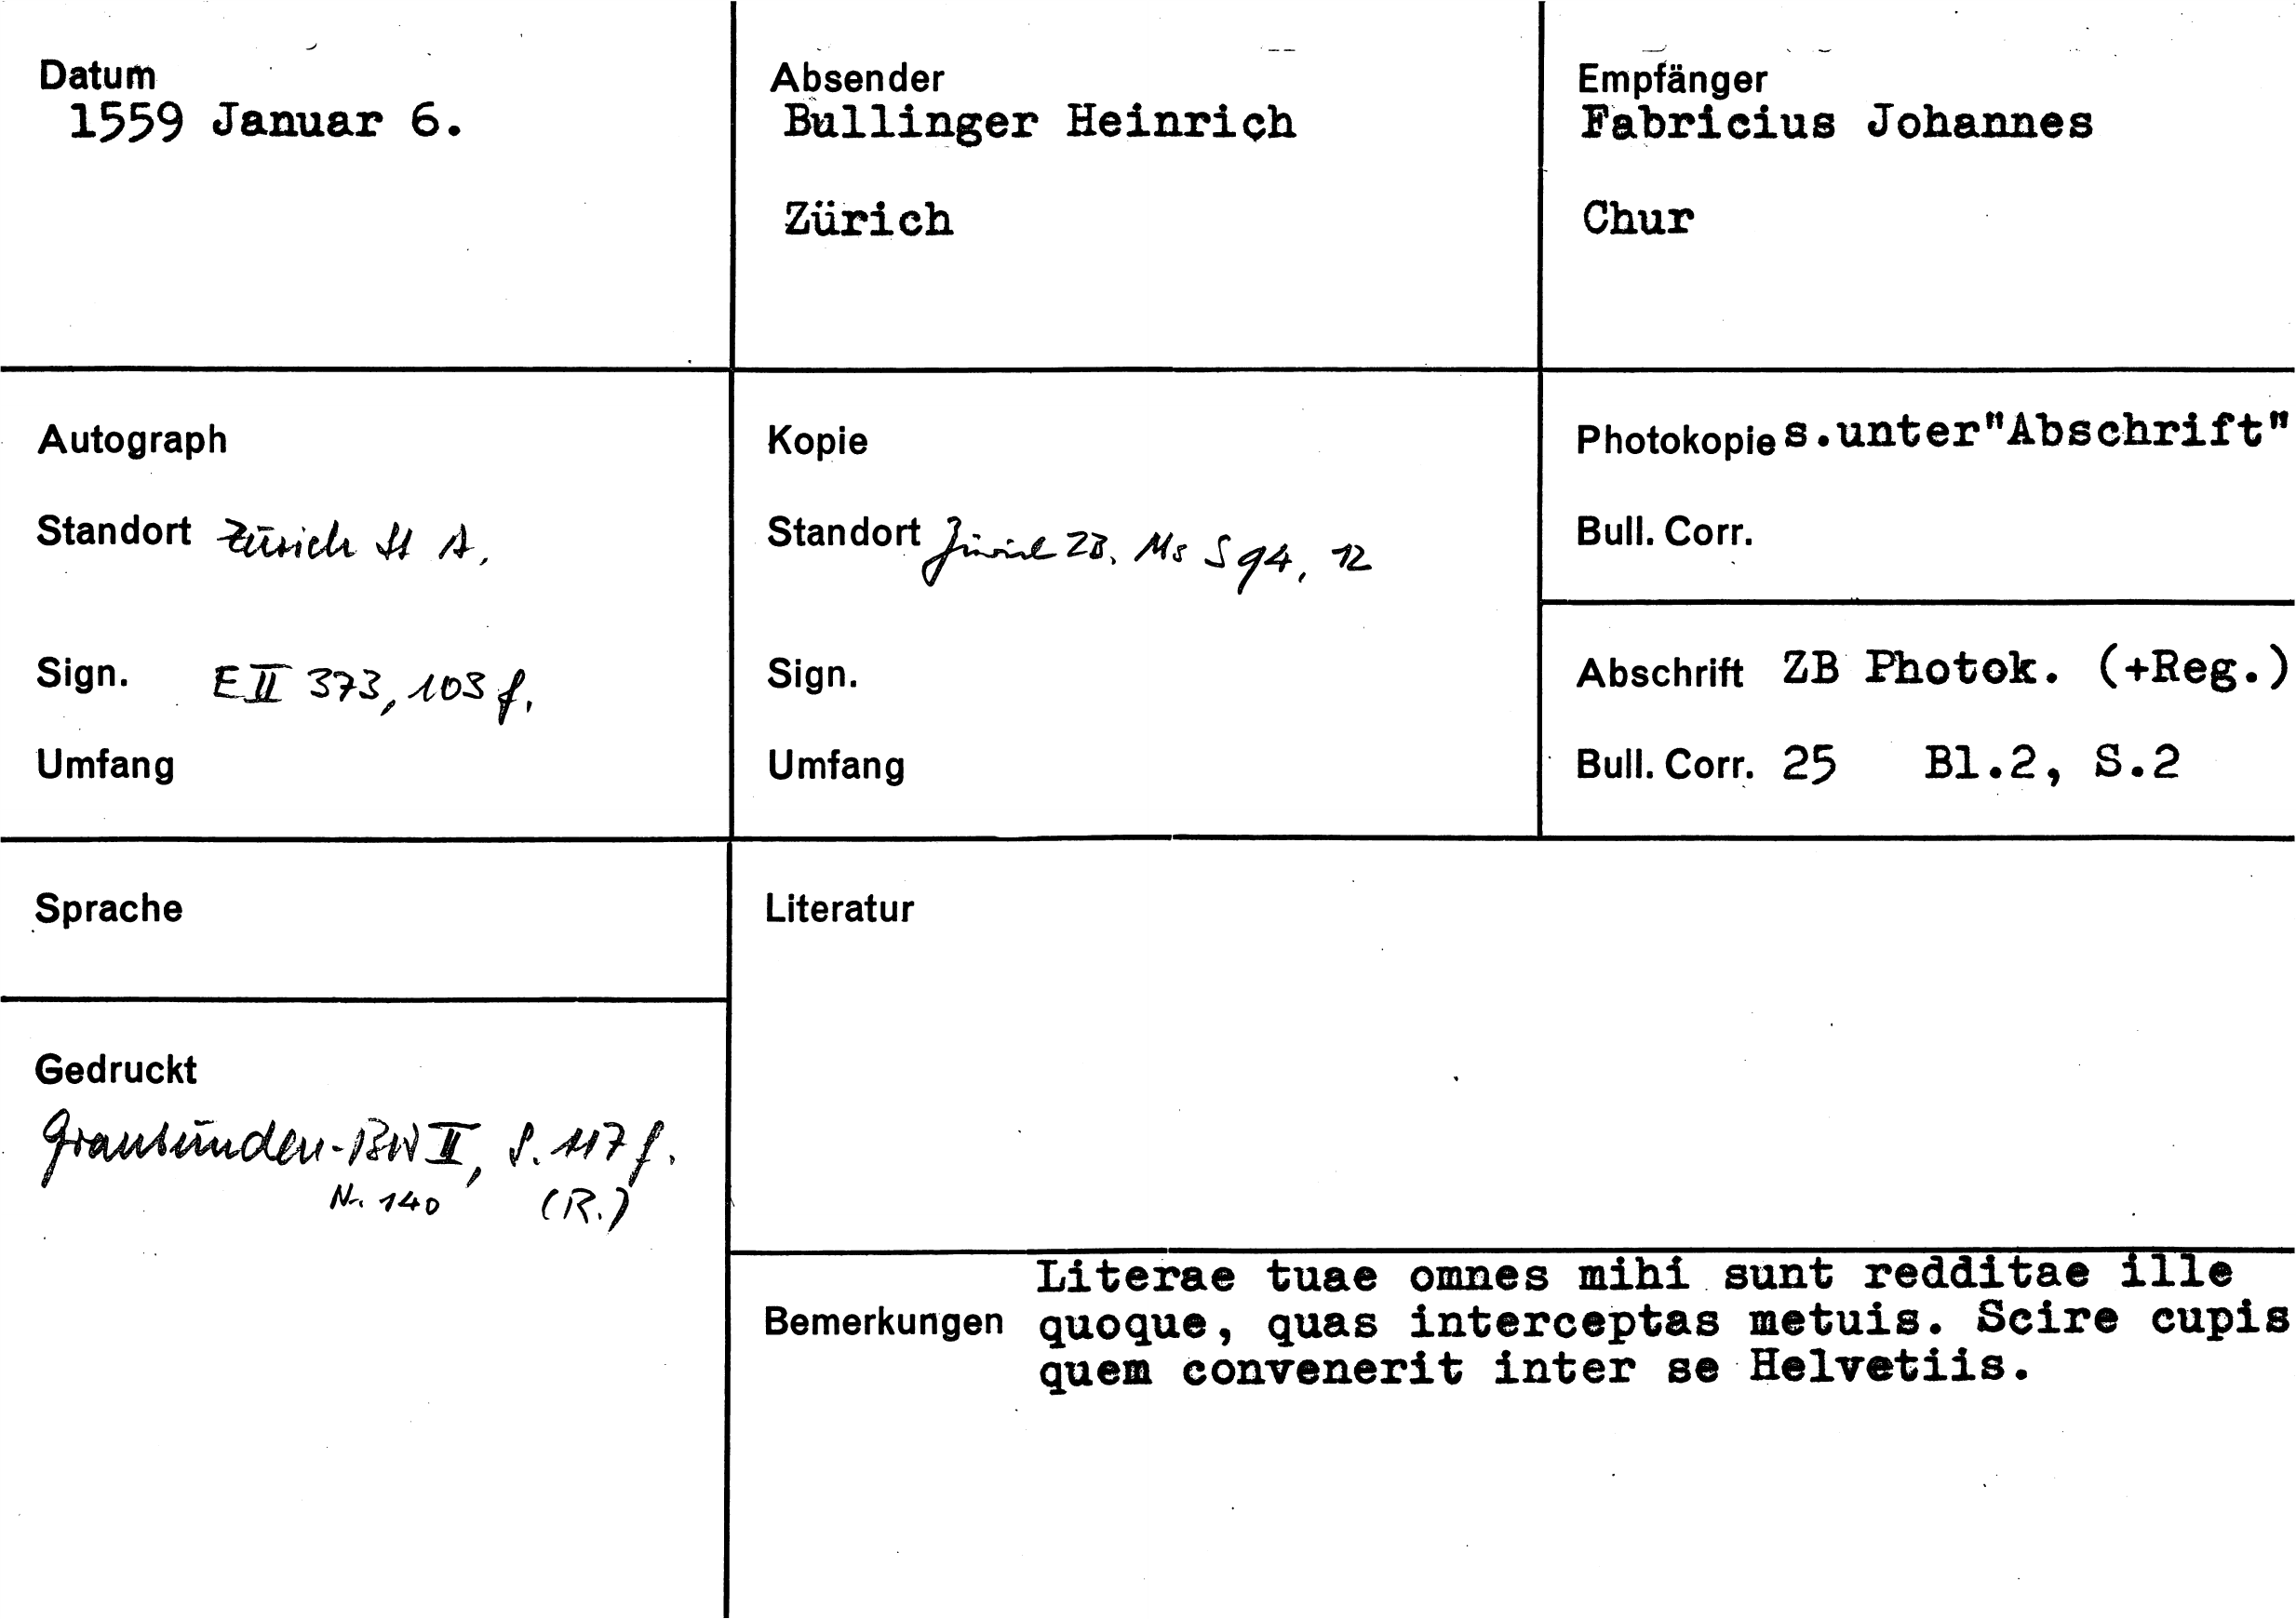 Datum
1559 Januar 6.
Absender
Bullinger Heinrich
Zürich
Empfänger
Fabricius Johannes
Chur
Autograph
Standort Zürich St A.
Sign. E II 373, 103 f.
Umfang
Kopie
Standort Zürich ZB. Ms S 94, 12
Sign.
Umfang
Photokopie s.unter"Abschrift"
Bull. Corr.
Abschrift ZB Photok. (+Reg.)
Bull. Corr. 25 Bl.2, S.2
Sprache
Gedruckt
Graubünden-BW II, S. 117 f.
Nr. 140 (R.)
Literatur
Bemerkungen
Literae tuae omnes mihi sunt redditae ille
quoque, quas interceptas metuis. Scire cupis
quem convenerit inter se Helvetiis.